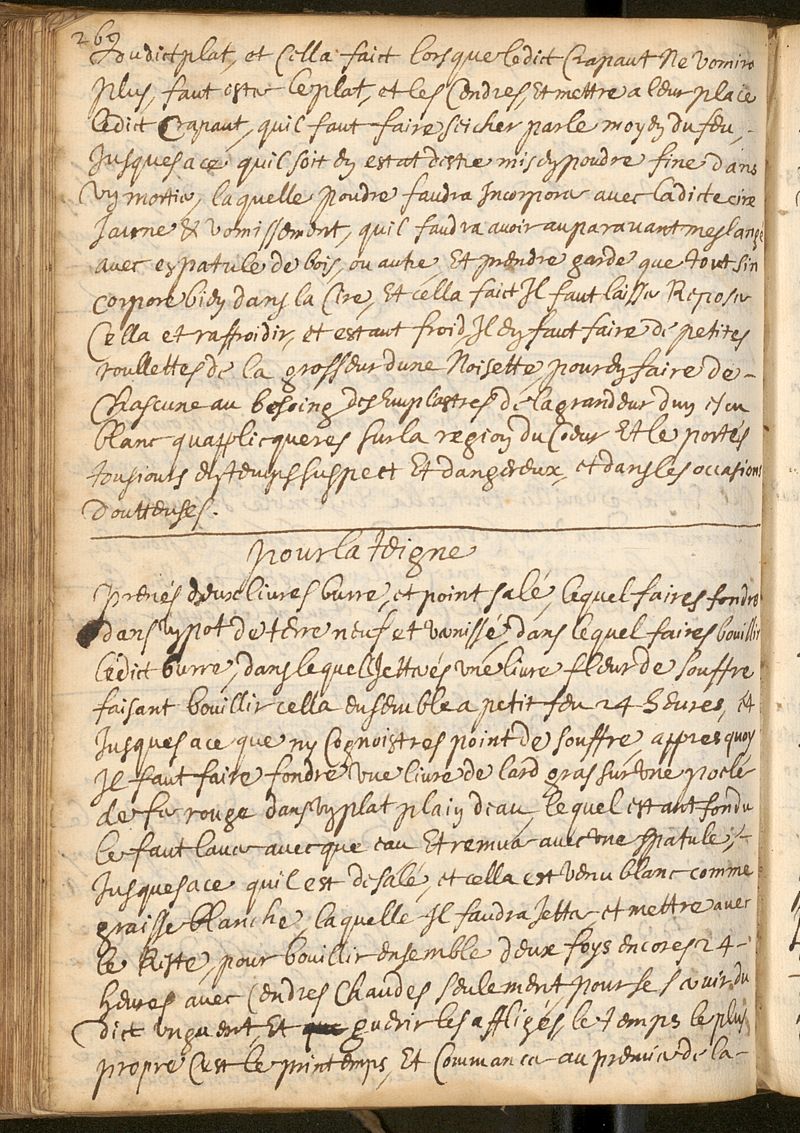 269
dudict plat, et Cella faict lorsque ledict Crapaut Ne vomira
plus, faut oster le plat, et les Cendres, Et mettre a leur place
ledict Crapaut, quil faut faire seicher par le moyen du feu,-
Jusques a ce quil soit en estat destre mis en poudre fine dans
un mortier, laquelle poudre faudra Incorporer avec ladicte cire
Jaune & vomissement, quil faudra avoir auparavant meslange
avec espatule de bois, ou autre Et prendre garde que tout sin
corpore bien dans la Cire, Et cella faict Il faut laisser Reposer
Cella et raffroidir, et estant froid, Il en faut faire de petites
roullettes de la grosseur dune Noisette pour en faire de-
Chascune au besoing des Emplastres de la grandeur dun escu
blanc quapplicqueres sur la region du Coeur Et le portes
tousiours en temps suspect Et dangereux, et dans les occasions
doutteuses.
pour la teigne
prenés deux livres burre, et point salé, lequel faires fondre
dans un pot de terre neuf et vanissé, dans lequel faires bouillir
ledict burre, dans lequel Jettarés une livre fleur de souffre
faisant bouillir cella ensemble a petit feu 24 heures, et
Jusques a ce que ny Cognoistres point de souffre, appres quoy
Il faut faire fondre une livre de lard gras sur une poele
de fer rouge dans un plat plain deau, lequel estant fondu
le faut laver avecque eau Et remuer avec une spatule,-
Jusques a ce quil est desalé, et cella est venu blanc comme
graisse blanche, laquelle Il faudra Jetter et mettre avec
le Reste, pour bouillir ensemble deux foys encores 24-
heures avec Cendres Chaudes seulement pour se servir du
dict unguent, Et guerir les affligés, le temps le plus
propre C'est le printemps, Et Commancer au premier de la-